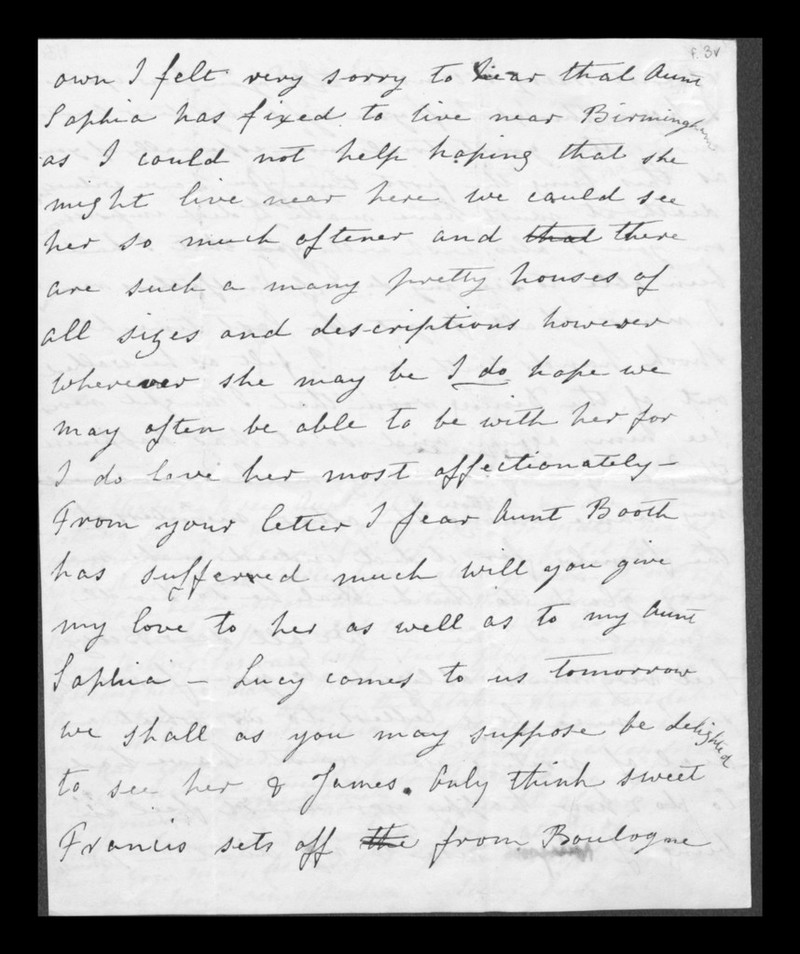 f. 3v
own I felt very sorry to hear that Aunt
Sophia has fixed to live near Birmingham
as I could not help hoping that she
might live near here we could see
her so much oftener and that there
are such a many pretty houses of
all sizes and descriptions however
wherever she may be I do hope we
may often be able to be with her for
I do love her most affectionately -
From your letter I fear Aunt Booth
has sufferred much will you give
my love to her as well as to my Aunt
Sophia - Lucy comes to us tomorrow
we shall as you may suppose be delighted
to see her & James. Only think sweet
Francis sets off the from Boulogne